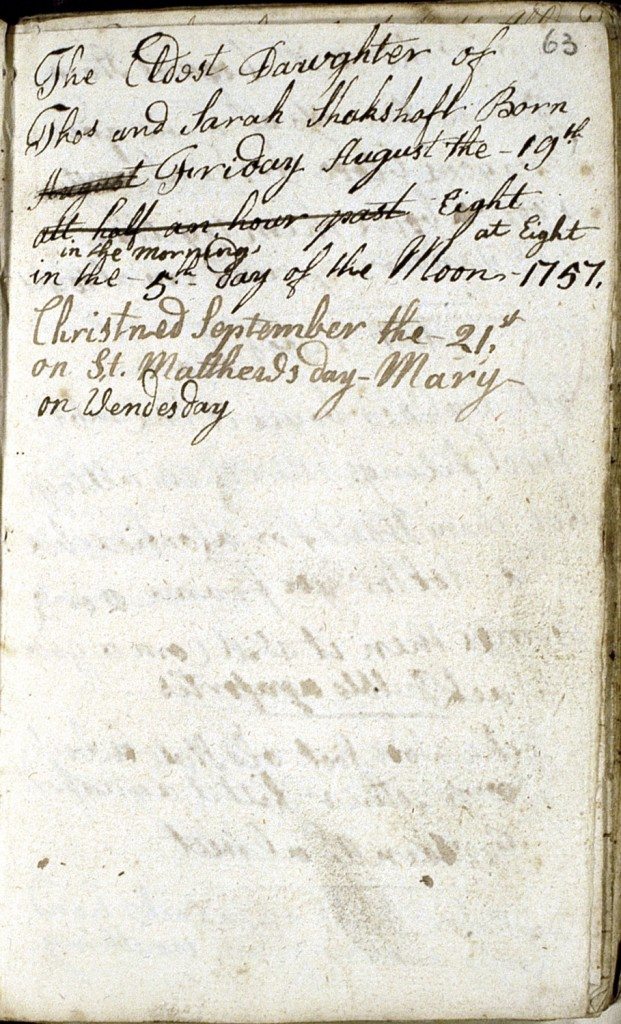 63
The Eldest Dawghter of
Thos and Sarah Shakshaft Born
August Friday August the - 19th
att half an hour past Eight
in the morning at Eight
in the - 5th day of the Moon - 1757.
Christned September the - 21st
on St. Matthews day - Mary
on Wendesday